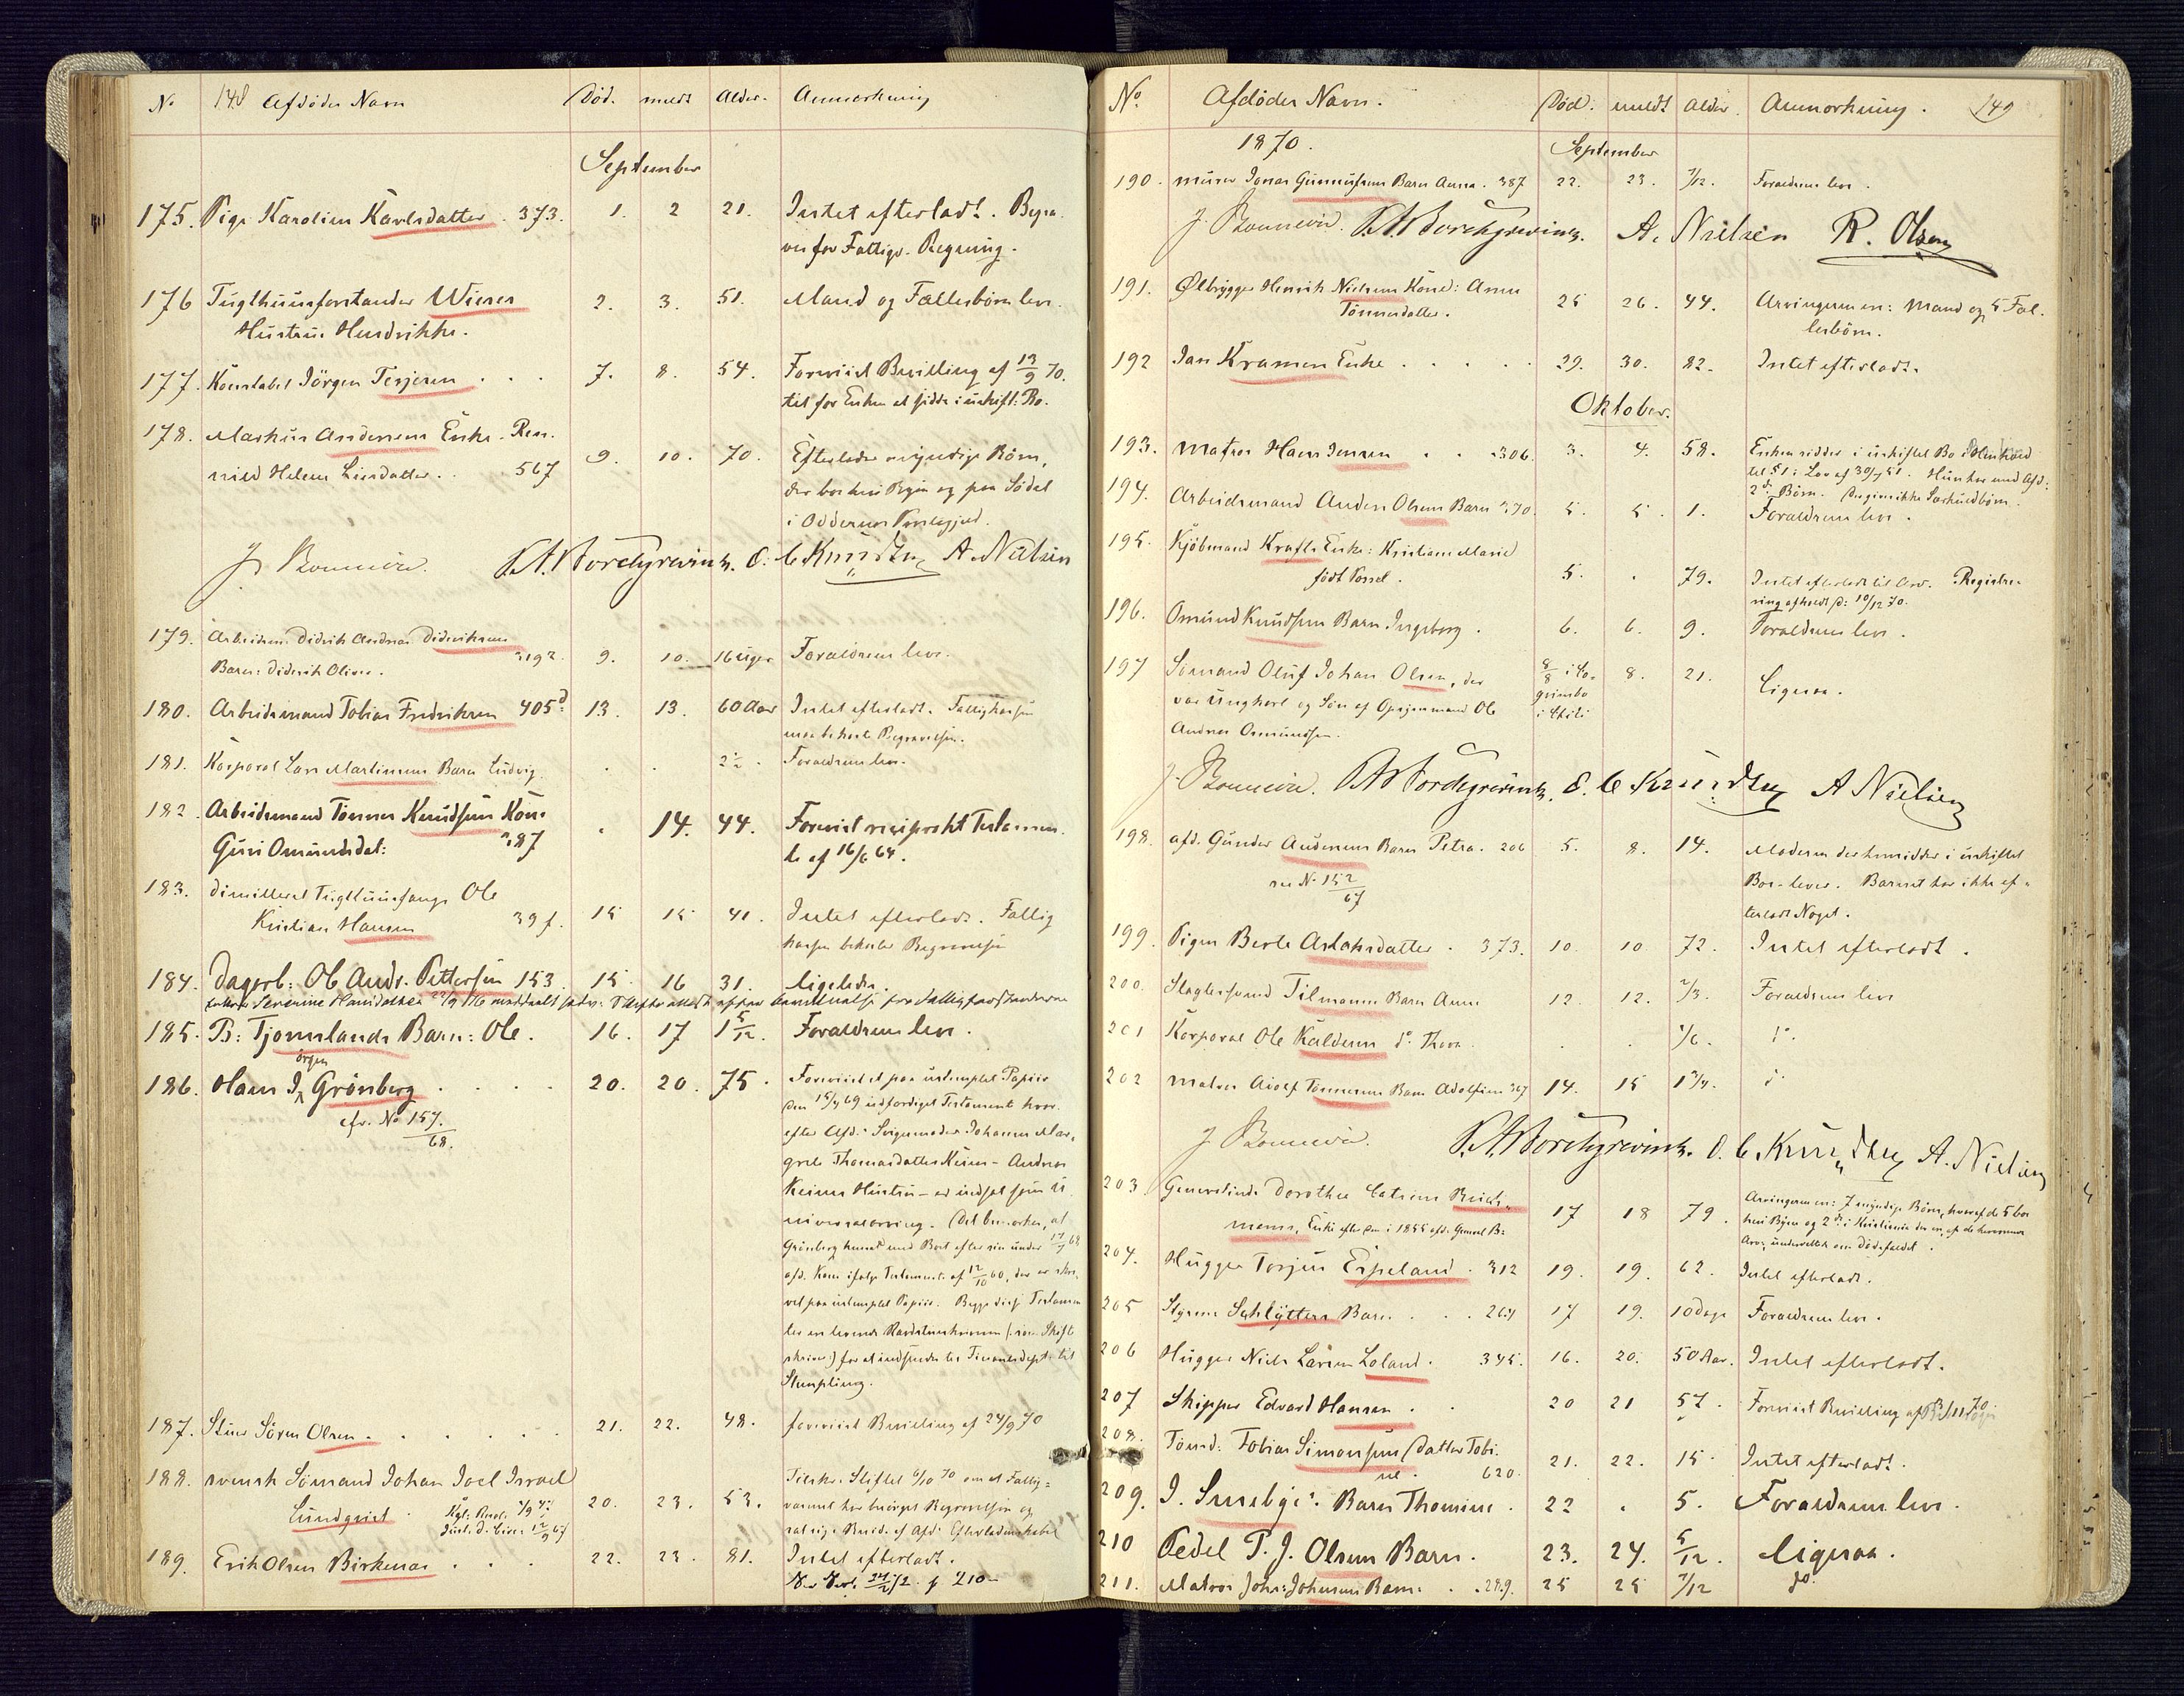 No 148 Afdødes Navn Død. meldt Alder. Anmærkning
September
175. Pige Karoline Karlsdatter. 373. 1. 2 21. Intet efterladt. Begra-
ves for Fattigv. Regning.
176 Tugthuusforstander Wieses 2. 3. 51. Mand og Fællesbørn lever.
Hustru Hendrikke.
177. Konstabel Jörgen Terjesen . . . 7. 8. 54. Foreviist Bevilling af 13/9 70.
til for Enken at sidde i uskift: Bo.
178. Markus Andersens Enke. Ren.
nild Helene Liesdatter . . 567 9. 10. 70. Efterlader myndige Börn,
der boe her i Byen og paa Södal
i Oddernes Præstegjeld.
J. Bonnevie. P.A. Borchgrevink. O. C. Knudsen A. Nielsen
179. Arbeidsm. Didrik Andreas Didriksens
Barn: Didrik Oliver. 9. 10. 16 uger Forældrene lever.
180. Arbeidsmand Tobias Fredriksen 405d: 13. 13. 60 Aar Intet efterladt. Fattigkassen
maa bekoste Begravelsen.
181. Korporal Lars Martinsens Barn Ludvig. . . 2½. Forældrene lever.
182. Arbeidsmand Tönnes Knudsens Kone . 14. 44. Forevist reciprokt Testamen-
Guri Omundsdat: te af 16/6 64.
183. Dimitteret Tugthuusfange Ole
Kristian Hansen 397. 15 15 41. Intet efterladt. Fattig
kassen bekoster Begravelsen
184. Dagarb: Ole Andr. Pettersen 153. 15. 16 31. Ligeledes.
185. B: Tjomslands Barn: Ole. 16. 17 1 5/12. Forældrene lever.
örgen
186. Hans J. Grönberg . . . . 20. 20. 75. Foreviist et paa ustemplet Papiir
cfr. No 157/68.
den 15/4 69 udfærdiget Testament hvor-
efter Afd: Svigermoder Johanne Mar-
grete Thomasdatter Keim - Andreas
Keims Hustru - er indsat som u-
niversalarving. Det bemærkes, at
Grönberg hensat med Boet efter sin under 17/7 68
afd. Kone ifølge Testament af 12/10 60, der er skre-
vet paa ustemplet Papiir. Begge disse Testamen
ter
for at indsendes til Finantsdept. til
Stempling.
187. Stuer Sören Olsen . . . . . . 21. 22. 48. foreviist Bevilling af 24/9 70
188. svensk Sömand Johan Joel Israel
Lundqvist. 20. 23. 53. Tilskr. Stiftet 6/10 70 om at Fattig-
væsenet har besörget Begravelsen og
189. Erik Olsen Birkenæs . . . 22. 23. 81. Intet efterladt.
No. Afdødes Navn. Død. meldt Alder. Anmærkning. 149
1870. September
190. Murer Jonas Gunnufsens Barn Anna. 387 22. 23. 7/12. Forældrene lever.
J. Bonnevie. P.A. Borchgrevink. A. Nielsen R. Olsen
191. Ølbrygger Henrik Nielsens Kone: Anne
Tönnesdatter. 25 26. 44. Arvingerne ere: Mand og 5 Fæl-
lesbörn.
192 Jan Kramers Enke . . . . . 29. 30. 82. Intet efterladt.
Oktober.
193. Matros Hans Jensen . . . 306. 3. 4. 58. Enken sidder i uskiftet Bo i Henhold
til § 1 i Lov af 30/7 51. Hun har med Afd:
2de Börn. Der gives ikke Særkuldbörn.
194. Arbeidsmand Anders Olsens Barn 370. 5. 5. 1. Forældrene lever.
195. Kjöbmand Krafts Enke: Kristiane Marie
født Possel. 5. . 79. Intet efterladt til Arv. Registre-
ring afholdt d: 10/12 70.
196. Omund Knudsens Barn Ingeborg. 6. 6. 9. Forældrene lever.
197 Sömand Oluf Johan Olsen, der 8/8 i Co- 8. 21. Ligesaa.
var Ungkarl og Sön af Opsynsmand Ole quimbo
Andreas Osmundsen. i Chili
J. Bonnevie. P.A. Borchgrevink. O. C. Knudsen A Nielsen
198. afd. Gunder Andersens Barn Petra. 206 5. 8. 14. Moderen der hensidder i uskiftet
see No 152/67
Boe - lever. Barnet har ikke ef-
terladt Noget.
199. Pigen Berte Aslaksdatter. 373. 10. 10 72. Intet efterladt.
200. Slagtersvend Tilmanns Barn Anne 12. 12. 2/3. Forældrene lever
201 Korporal Ole Kaldsens do. Thora. . . 1/6. do.
202 Matros Adolf Tönnesens Barn Adolfine 367 14. 15 1¾. do
J Bonnevie. P.A. Borchgrevink. O. C. Knudsen A. Nielsen
203. Generalinde Dorothea Catrine Brich-
manns, Enke efter den i 1855 afd. General B: 17 18 79. Arvingerne ere: 7 myndige Börn, hvoraf de 5 boe
her i Byen og 2de i Kristiania
underrettet om Dödsfaldet.
204. Hugger Torjus Espeland. 312 19. 19. 62. Intet efterladt.
205 Styrm. Schlytters Barn . . . 267 17 19. 10 dage Forældrene lever.
206 Hugger Niels Larsen Loland. 345. 16. 20. 50 Aar. Intet efterladt.
207 Skipper Edvard Hansen . . 20 21 57. Foreviist Bevilling af
208. Tömd: Tobias Simonsens Datter Tobi-
ne. 620. 21. 22. 15. Intet efterladt.
209. J. Suseby's: Barn Thomine. 22 . 5. Forældrene lever.
210 Pedel P. J. Olsens Barn. 23. 24. 5/12. Ligesaa.
211. Matros Johs: Johnsens Barn. . 299. 25 25 7/12 do